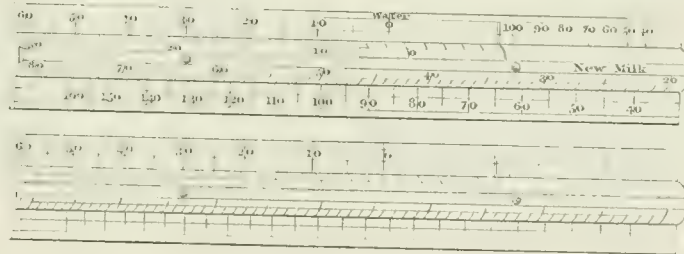 60 50 40 30 20 10 Water 100 90 80 70 60 50 40
20 10 0
80 70 60 50 40 30 New Milk 20
160 150 140 130 120 110 100 90 80 70 60 50 40
60 50 40 30 20 10 0